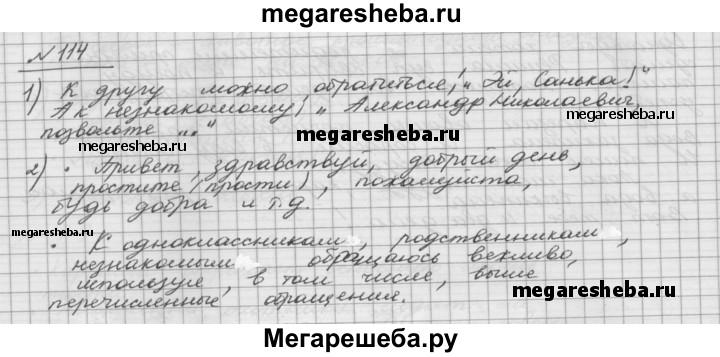 megaresheba.ru
№ 114
1) К другу можно обратиться: „Эй, Санька!“
А к незнакомому: „Александр Николаевич,
позвольте ..."
megaresheba.ru
2) • Привет, здравствуй, добрый день,
простите (прости), пожалуйста,
будь добра и т.д.
megaresheba.ru
megaresheba.ru
• К одноклассникам, родственникам,
незнакомым обращаюсь вежливо,
используя, в том числе, выше
перечисленные обращения.
megaresheba.ru
Мегарешеба.ру